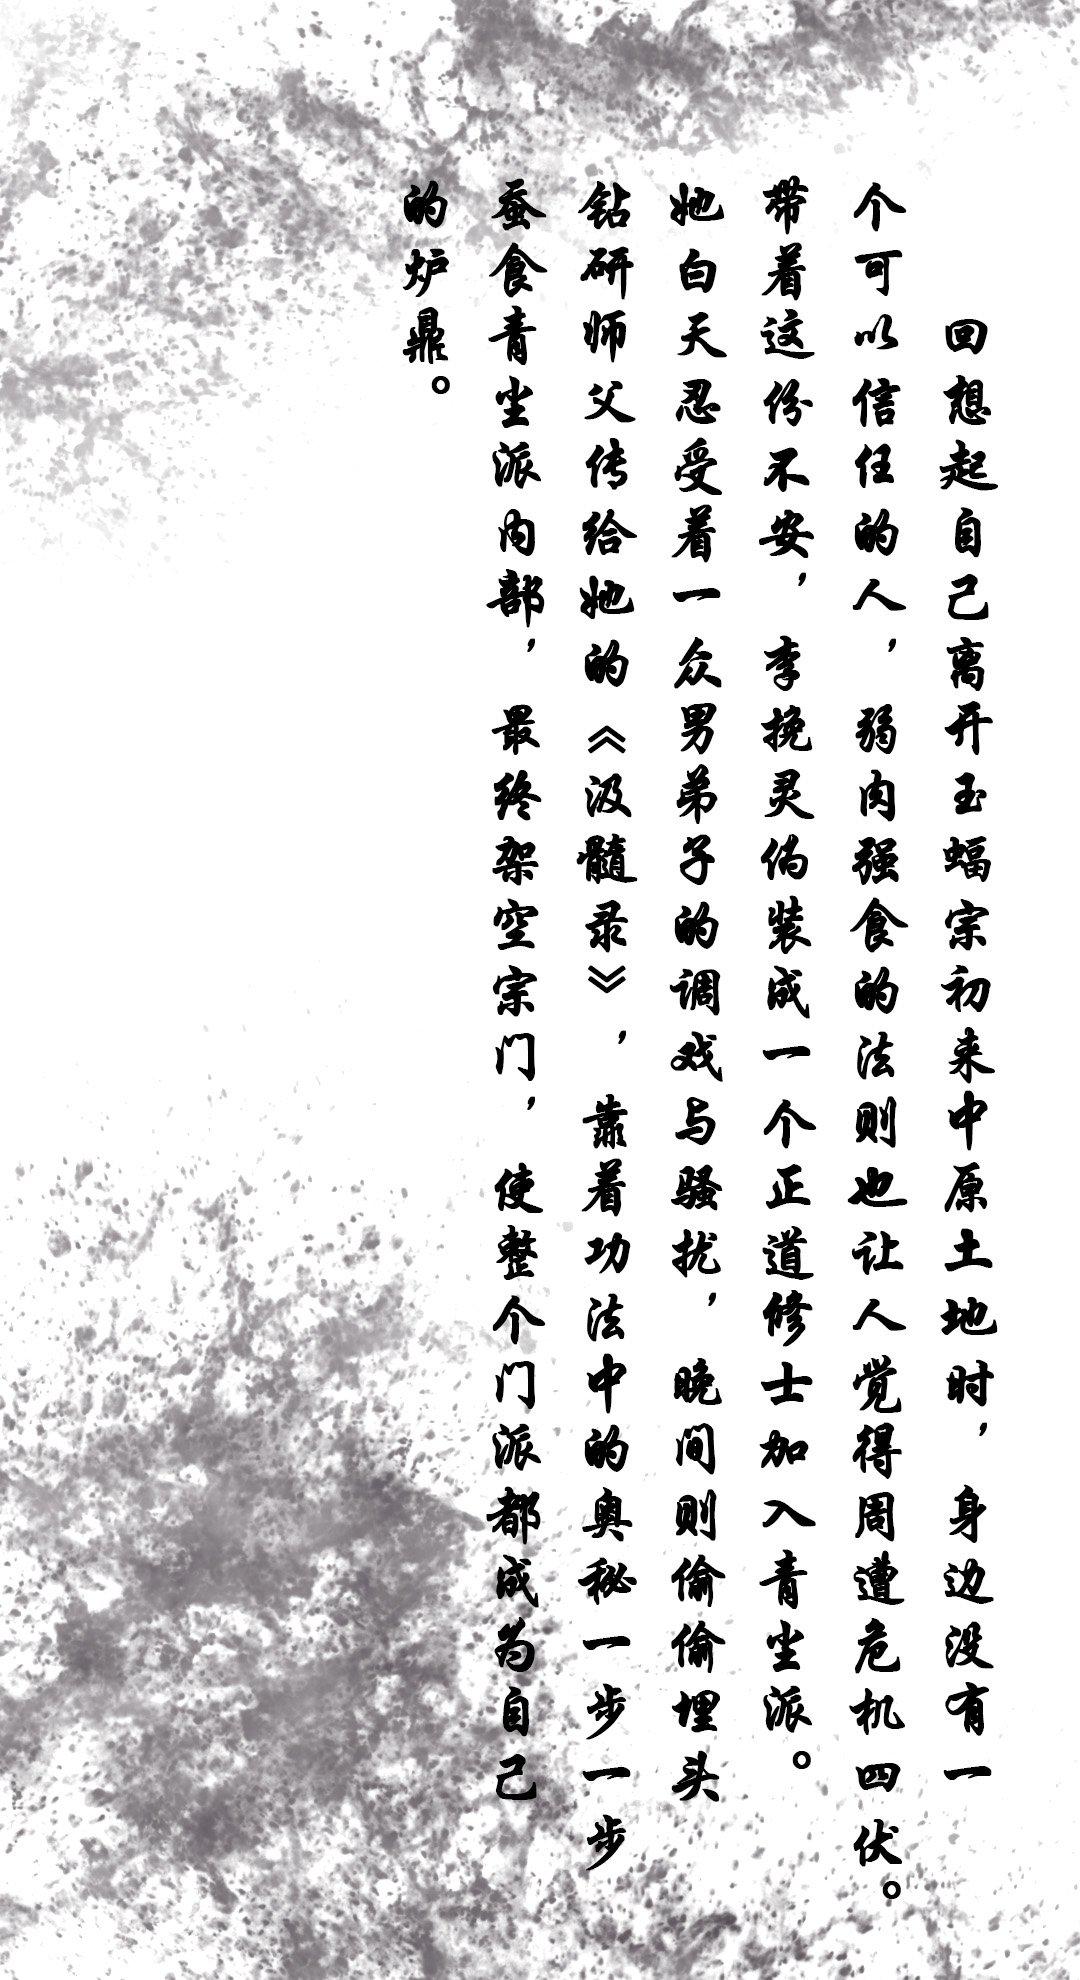 回想起自己离开玉蝠宗初来中原土地时，身边没有一
个可以信任的人，弱肉强食的法则也让人觉得周遭危机四伏。
带着这份不安，李挽灵伪装成一个正道修士加入青尘派。
她白天忍受着一众男弟子的调戏与骚扰，晚间则偷偷埋头
钻研师父传给她的《汲髓录》，靠着功法中的奥秘一步一步
蚕食青尘派内部，最终架空宗门，使整个门派都成为自己
的炉鼎。